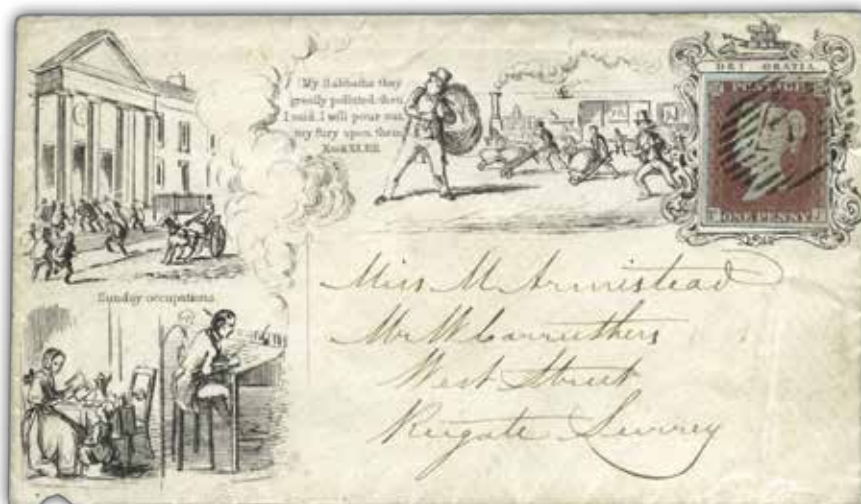 My Sabbaths they
greatly polluted, then
I said, I will pour out
my fury upon them
Ezek XX.XIII.
DEI GRATIA
POSTAGE
ONE PENNY
Sunday occupations.
Miss M Armistead
Mr W Carruthers
West Street
Reigate Surrey